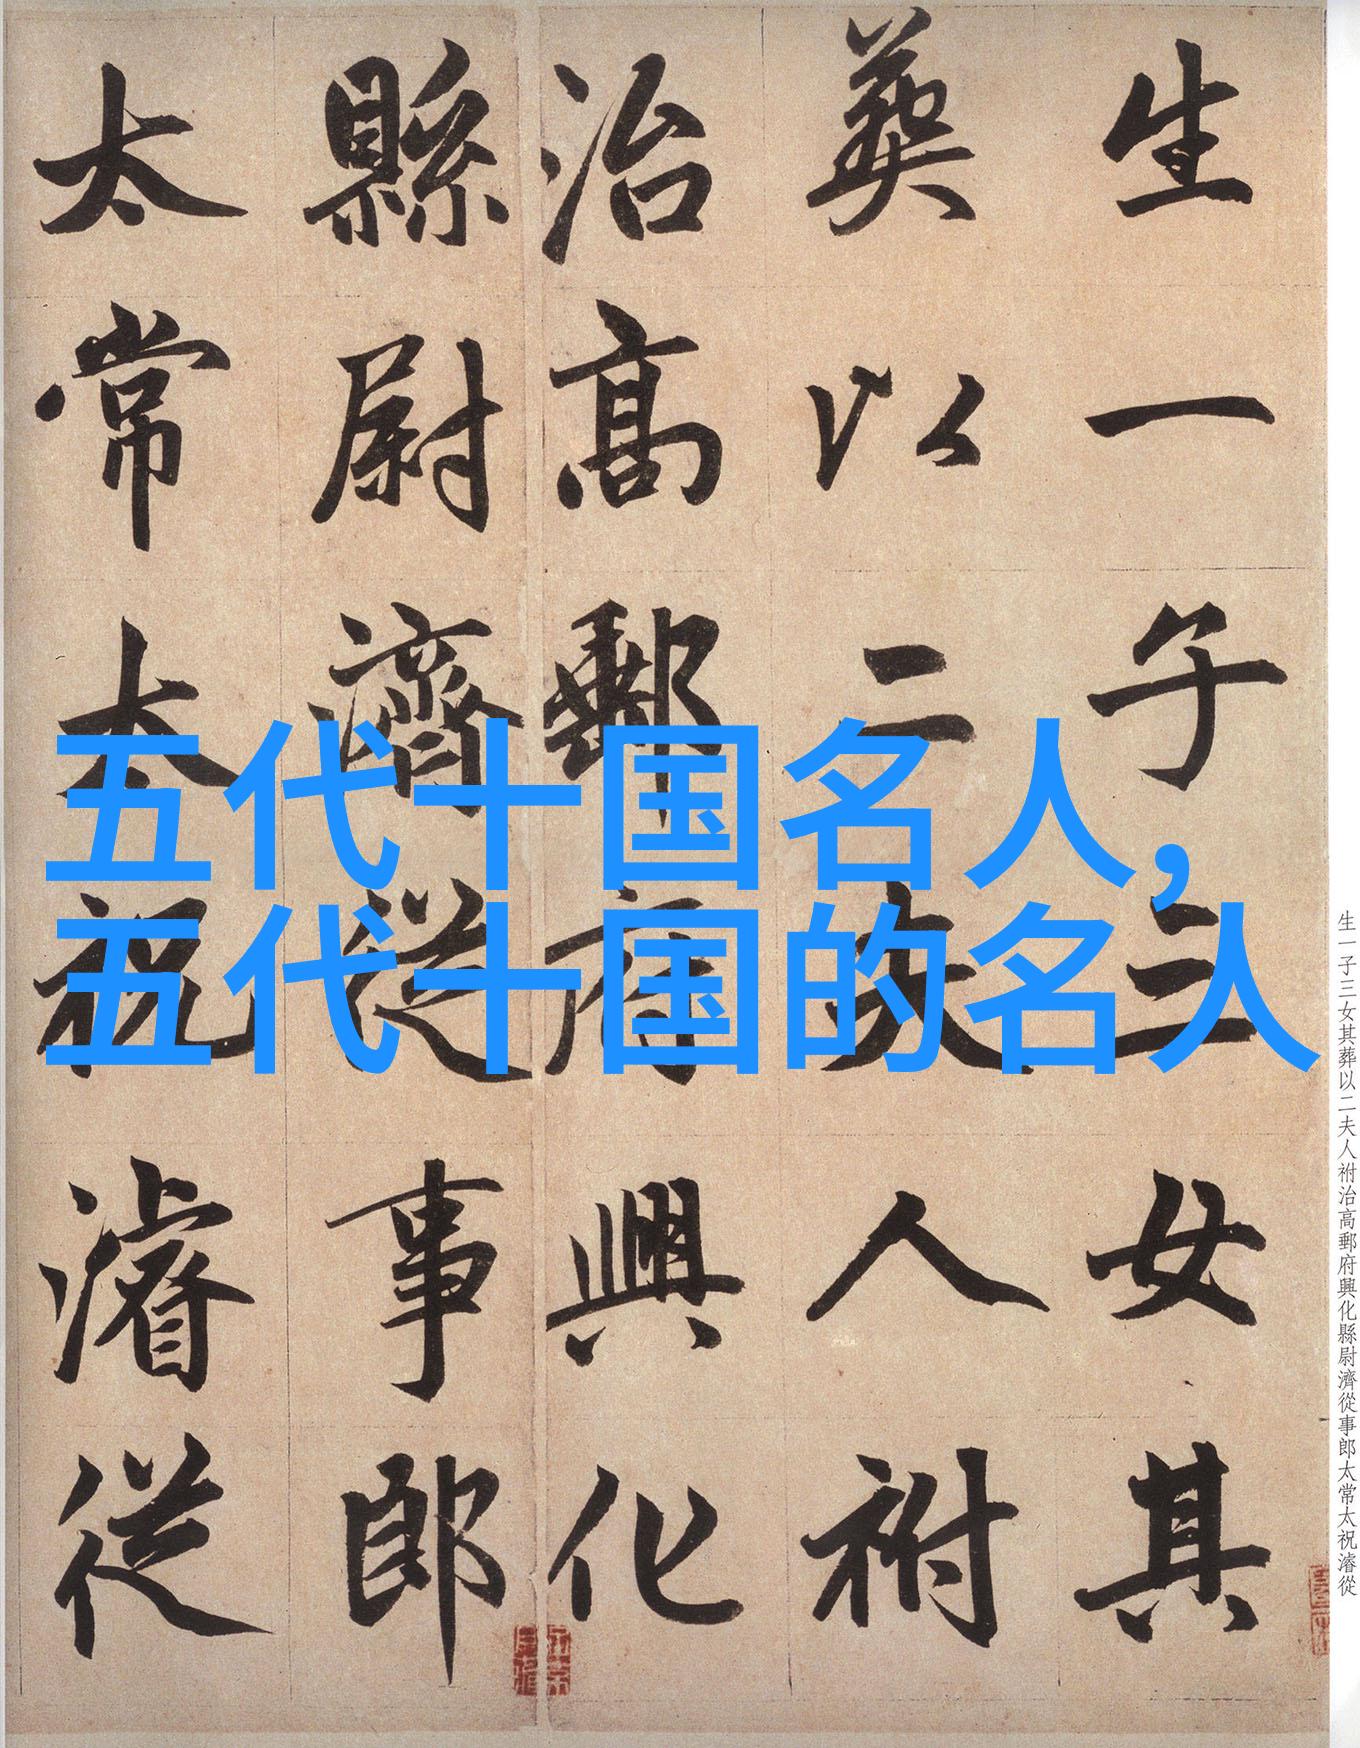 生一子三女其
葬以二夫人祔
治高郵府興化
縣尉濟從事郎
太常太祝濬從
五代十国名人，
五代十国的名人
生一子三女其葬以二夫人祔治高郵府興化縣尉濟從事郎太常太祝濬從